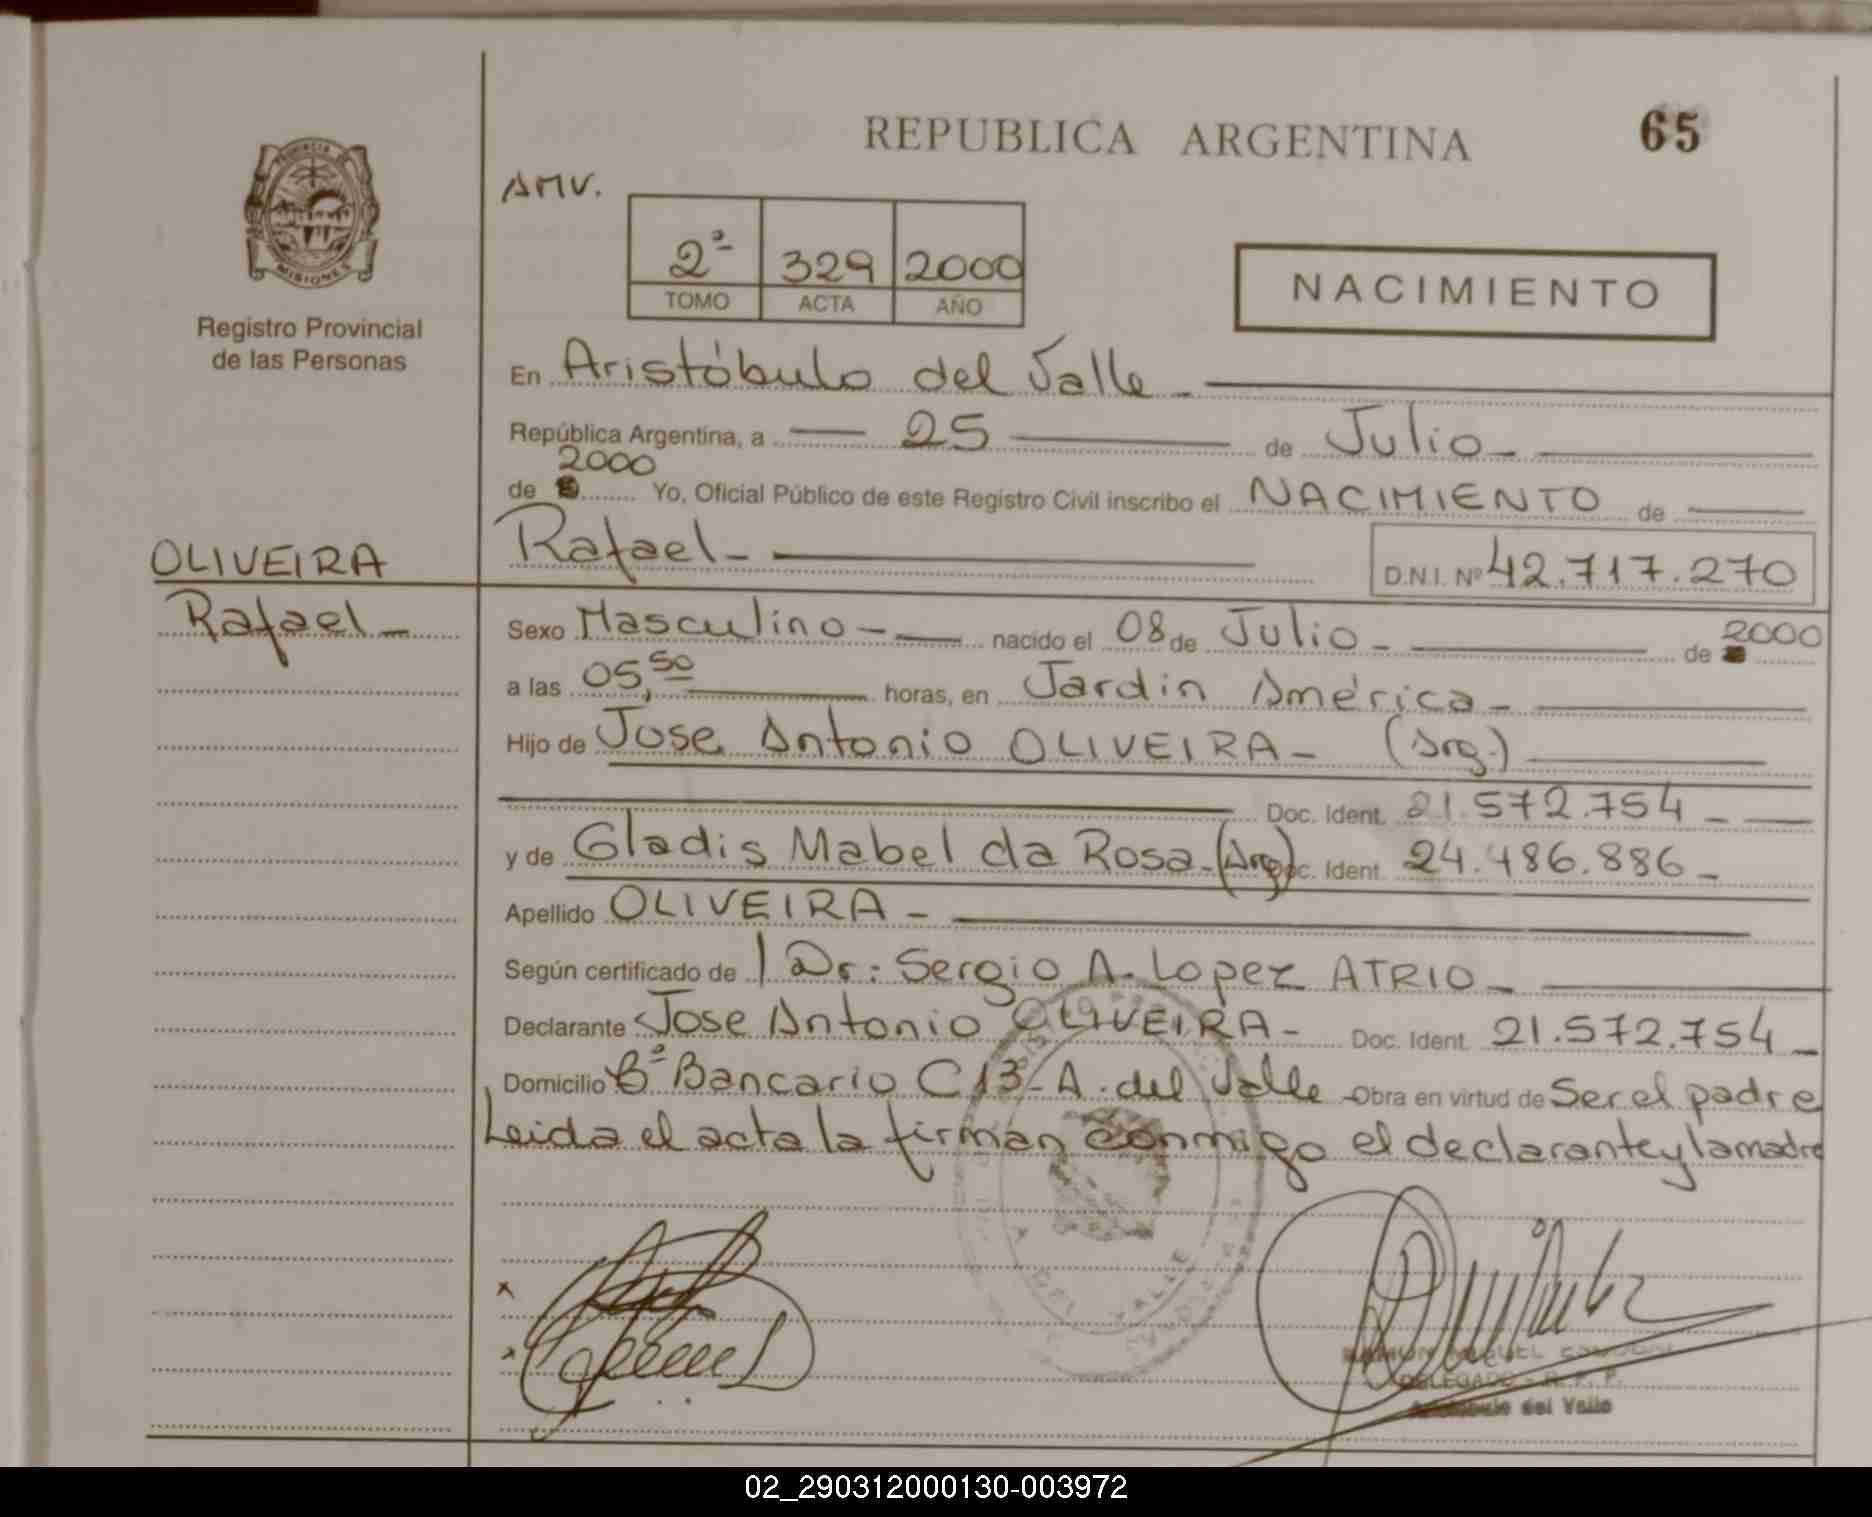 REPUBLICA ARGENTINA
65
PROVINCIA DE
MISIONES
Registro Provincial
de las Personas
AMV.
2ª 329 2000
TOMO ACTA AÑO
NACIMIENTO
En Aristóbulo del Valle -
República Argentina, a 25 de Julio -
2000
de Yo, Oficial Público de este Registro Civil inscribo el NACIMIENTO de
Rafael - D.N.I. Nº 42.717.270
OLIVEIRA
Rafael -
Sexo Masculino - nacido el 08 de Julio - de 2000
a las 05,50 horas, en Jardin América -
Hijo de Jose Antonio OLIVEIRA - (Arg.)
Doc. Ident. 21.572.754 -
y de Gladis Mabel da Rosa - (Arg) Doc. Ident. 24.486.886 -
Apellido OLIVEIRA -
Según certificado de Dr: Sergio A. Lopez ATRIO -
Declarante Jose Antonio OLIVEIRA - Doc. Ident. 21.572.754 -
Domicilio Bº Bancario C 13 - A. del Valle - Obra en virtud de Ser el padre
Leida el acta la firman conmigo el declarante y la madre
A DEL VALLE
RAMON MIGUEL
DELEGADO - R. P. P.
Aristóbulo del Valle
02_290312000130-003972